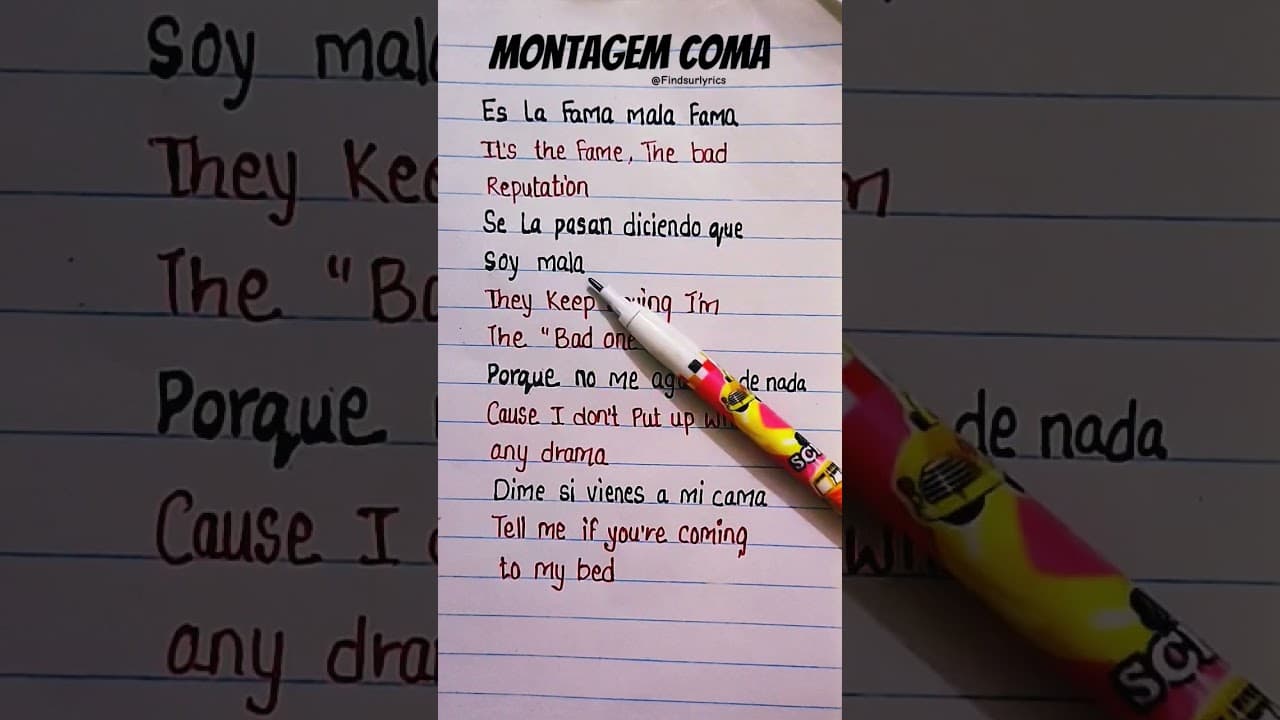 MONTAGEM COMA
@Findsurlyrics
Es La Fama mala Fama
It's the Fame, The bad
Reputation
Se La pasan diciendo que
Soy mala
They Keep I'm
The "Bad one
Porque no me de nada
Cause I don't Put up
any drama
Dime si vienes a mi cama
Tell me if you're coming
to my bed